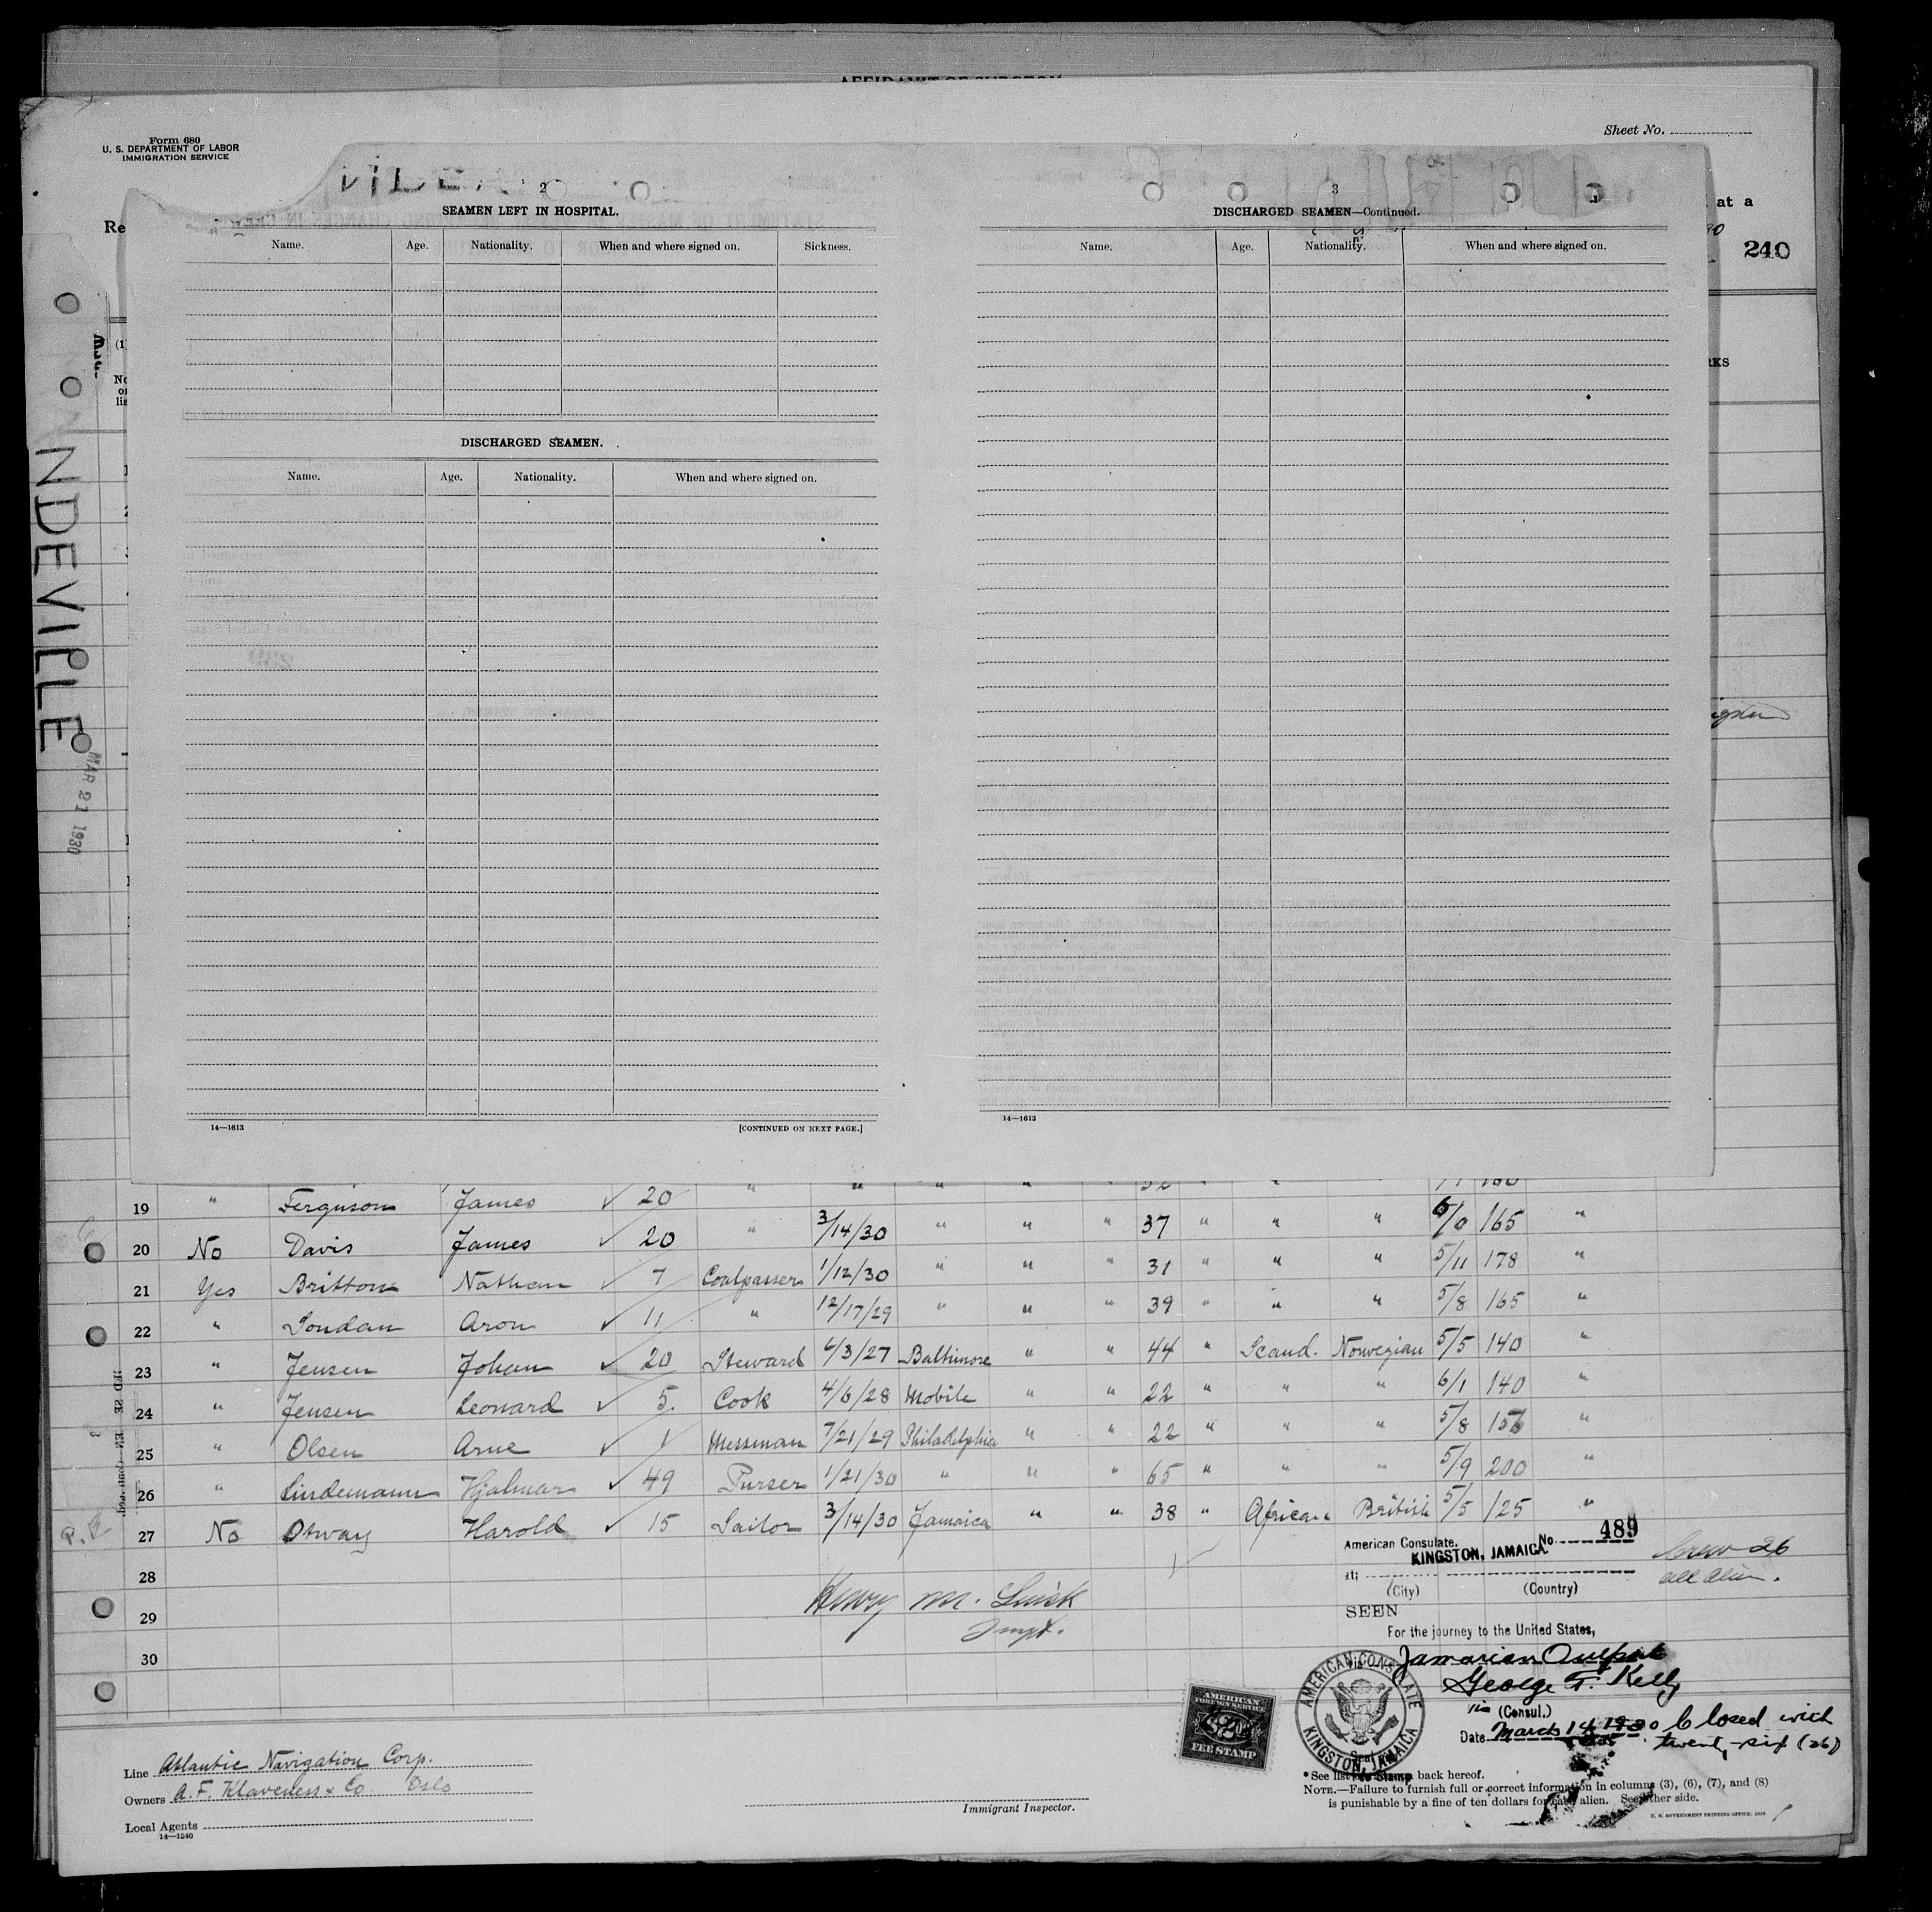 Form 680
U. S. DEPARTMENT OF LABOR
IMMIGRATION SERVICE
Sheet No.
at a
240
2
SEAMEN LEFT IN HOSPITAL.
Name. Age. Nationality. When and where signed on. Sickness.
DISCHARGED SEAMEN.
Name. Age. Nationality. When and where signed on.
14—1613 [CONTINUED ON NEXT PAGE.]
3
DISCHARGED SEAMEN—Continued.
Name. Age. Nationality. When and where signed on.
14—1613
NDEVILLE
MAR 21 1930
19 " Ferguson James ✓ 20 " " " " " 32 " " "
20 No Davis James ✓ 20 " 3/14/30 " " " 37 " " " 6/0 165 "
21 Yes Britton Nathan ✓ 7 Coalpasser 1/12/30 " " " 31 " " " 5/11 178 "
22 " Loudan Aron ✓ 11 " 12/17/29 " " " 39 " " " 5/8 165 "
23 " Jensen Johan ✓ 20 Steward 6/3/27 Baltimore " " 44 " Scand. Norwegian 5/5 140 "
24 " Jensen Leonard ✓ 5. Cook 4/6/28 Mobile " " 22 " " " 6/1 140 "
25 " Olsen Arne ✓ 1 Messman 7/21/29 Philadelphia " " 22 " " " 5/8 156 "
26 " Lindemann Hjalmar ✓ 49 Purser 1/21/30 " " " 65 " " " 5/9 200 "
27 No Otway Harold ✓ 15 Sailor 3/14/30 Jamaica " " 38 " African British 5/5 125 "
28
29
30
Henry M.
Inspt.
American Consulate, No. 489
KINGSTON, JAMAICA
at
(City) (Country)
SEEN
For the journey to the United States,
George F. Kelly
(Consul.)
Date March 14 1930
Crew 26
all alien.
Closed with
twenty-six (26)
AMERICAN CONSULATE
KINGSTON, JAMAICA
AMERICAN
FOREIGN SERVICE
FEE STAMP
Line Atlantic Navigation Corp.
Owners A. F. Klaveness & Co. Oslo
Local Agents
14—1240
Immigrant Inspector.
*See list back hereof.
NOTE.—Failure to furnish full or correct information in columns (3), (6), (7), and (8)
is punishable by a fine of ten dollars for each alien. See other side.
U. S. GOVERNMENT PRINTING OFFICE